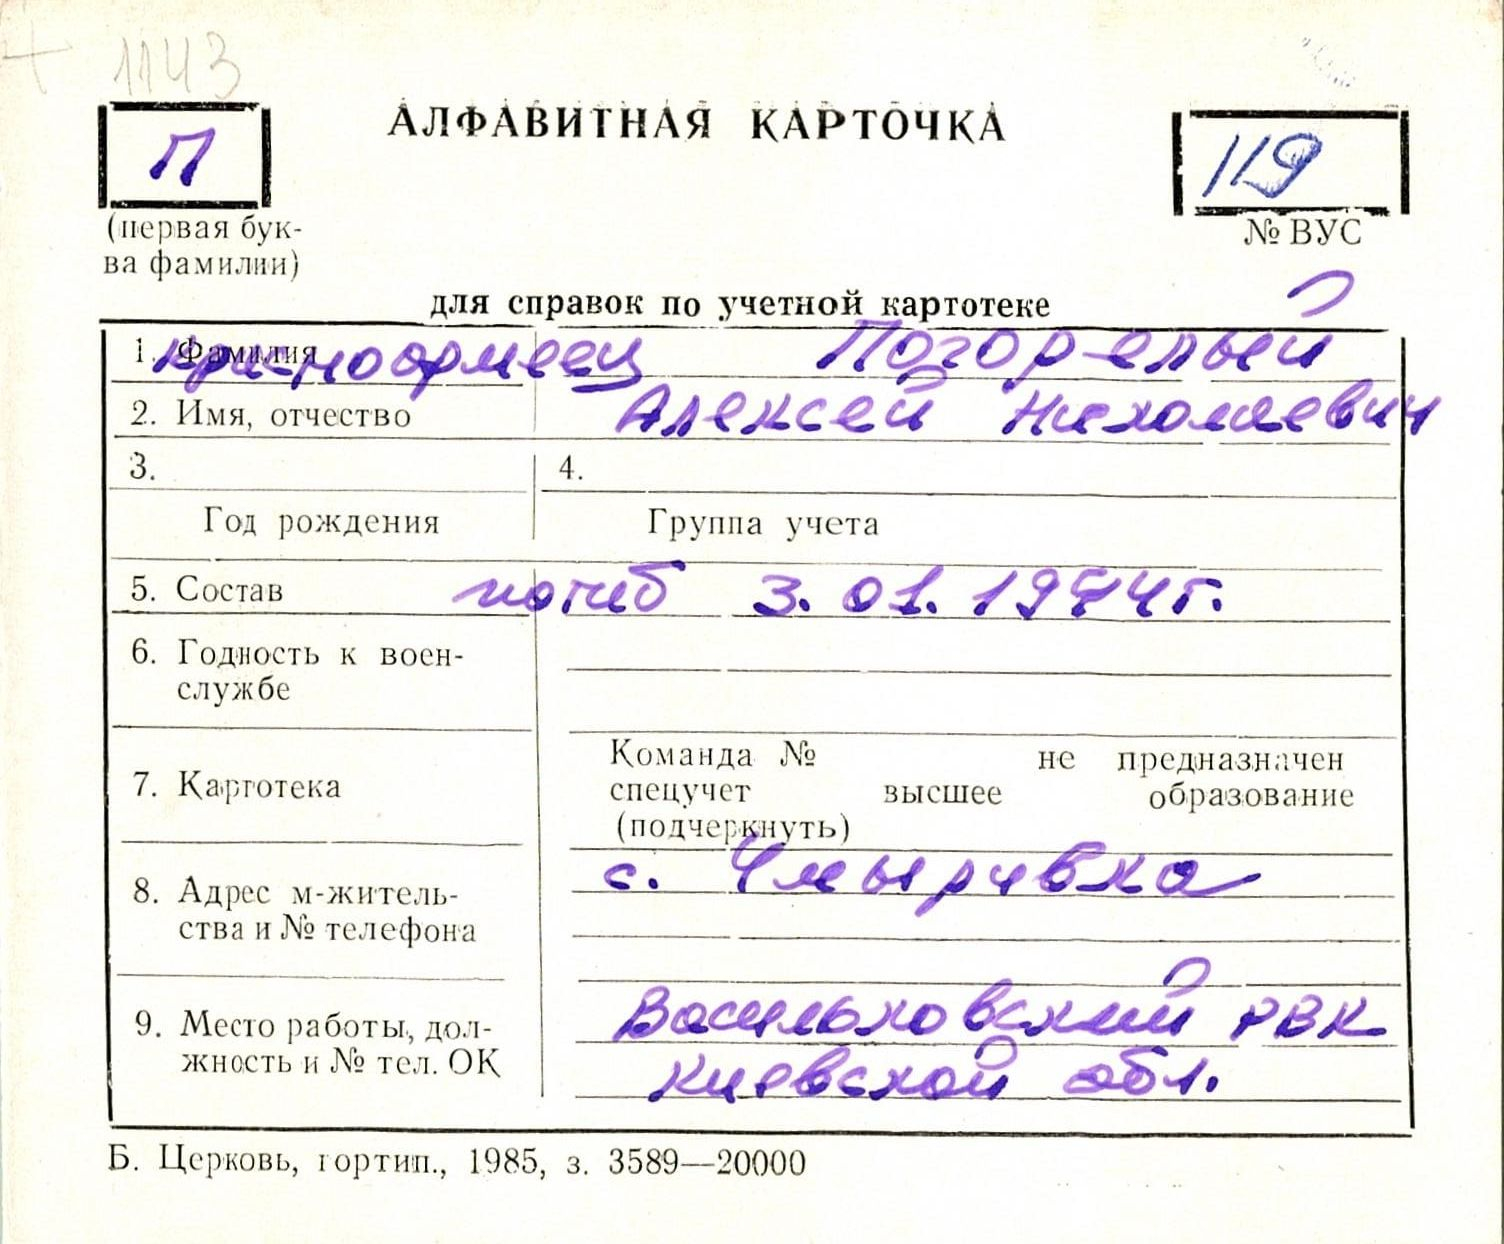 + 1143
АЛФАВИТНАЯ КАРТОЧКА
П
119
(первая бук-
ва фамилии)
№ ВУС
для справок по учетной картотеке
1. Фамилия красноармеец Погорелый
2. Имя, отчество Алексей Николаевич
3. 4.
Год рождения Группа учета
5. Состав погиб 3.01.1944г.
6. Годность к воен-
службе
Команда № не предназначен
7. Картотека спецучет высшее образование
(подчеркнуть)
с. Чмыривка
8. Адрес м-житель-
ства и № телефона
9. Место работы, дол-
жность и № тел. ОК
Васильковский РВК
Киевской обл.
Б. Церковь, гортип., 1985, з. 3589—20000